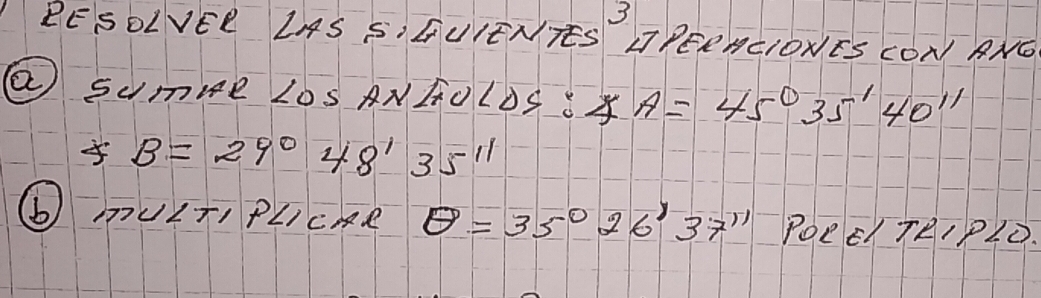 RESOLVER LAS SIGUIENTES 3 OPERACIONES CON ANG
(a) SUMAR LOS ANGULOS : ∡ A = 45° 35' 40"
∡ B = 29° 48' 35"
(b) MULTIPLICAR θ = 35° 26' 37" POR El TRIPLO.